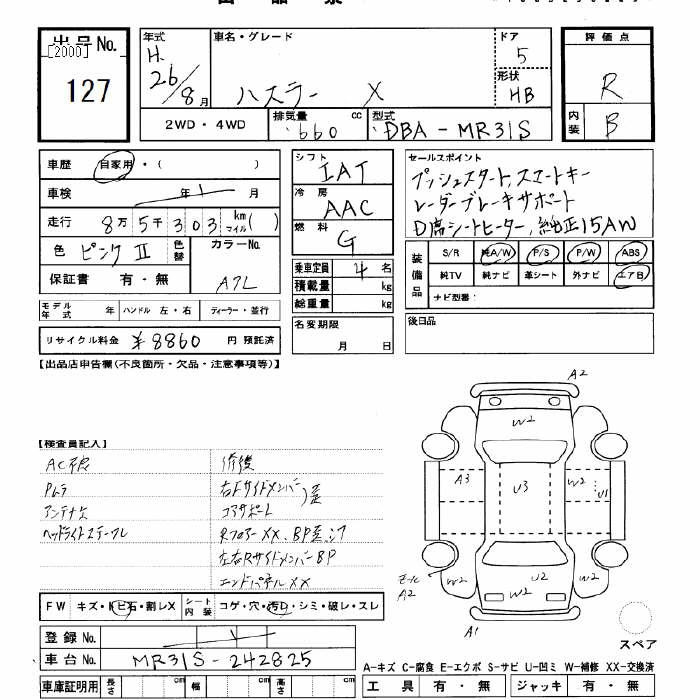 出品No. [2000] 127
年式 H. 26/8月
車名・グレード ハスラー X
ドア 5
形状 HB
評価点 R
内装 B
2WD・4WD
排気量 660 cc
型式 DBA-MR31S
車歴 自家用・( )
車検 年 1 月
走行 8万5千303 km マイル( )
色 ピンクⅡ 色替
カラーNo. A7L
保証書 有・無
モデル年式 年 ハンドル 左・右 ディーラー・並行
リサイクル料金 ¥8860 円 預託済
シフト IAT
冷房 AAC
燃料 G
乗車定員 4 名
積載量 kg
総重量 kg
名変期限 月 日
セールスポイント
プッシュスタート、スマートキー
レーダーブレーキサポート
D席シートヒーター、純正15AW
装備品 S/R 純A/W P/S P/W ABS
純TV 純ナビ 革シート 外ナビ エアB
ナビ型番:
後日品
【出品店申告欄(不良箇所・欠品・注意事項等)】
【検査員記入】
修復
アンテナ欠
右Fサイドメンバー
コアサポート
左右RサイドメンバーBP
エンドパネルXX
FW キズ・トビ石・割レX
シート内装 コゲ・穴・汚レ・シミ・破レ・スレ
登録No. 1
車台No. MR31S-242825
車庫証明用 長さ cm 幅 cm 高さ cm
A2
W2
A3
U3
W2
U1
A2
W2
U2
W2
W2
A1
スペア
A-キズ C-腐食 E-エクボ S-サビ U-凹ミ W-補修 XX-交換済
工具 有・無 ジャッキ 有・無